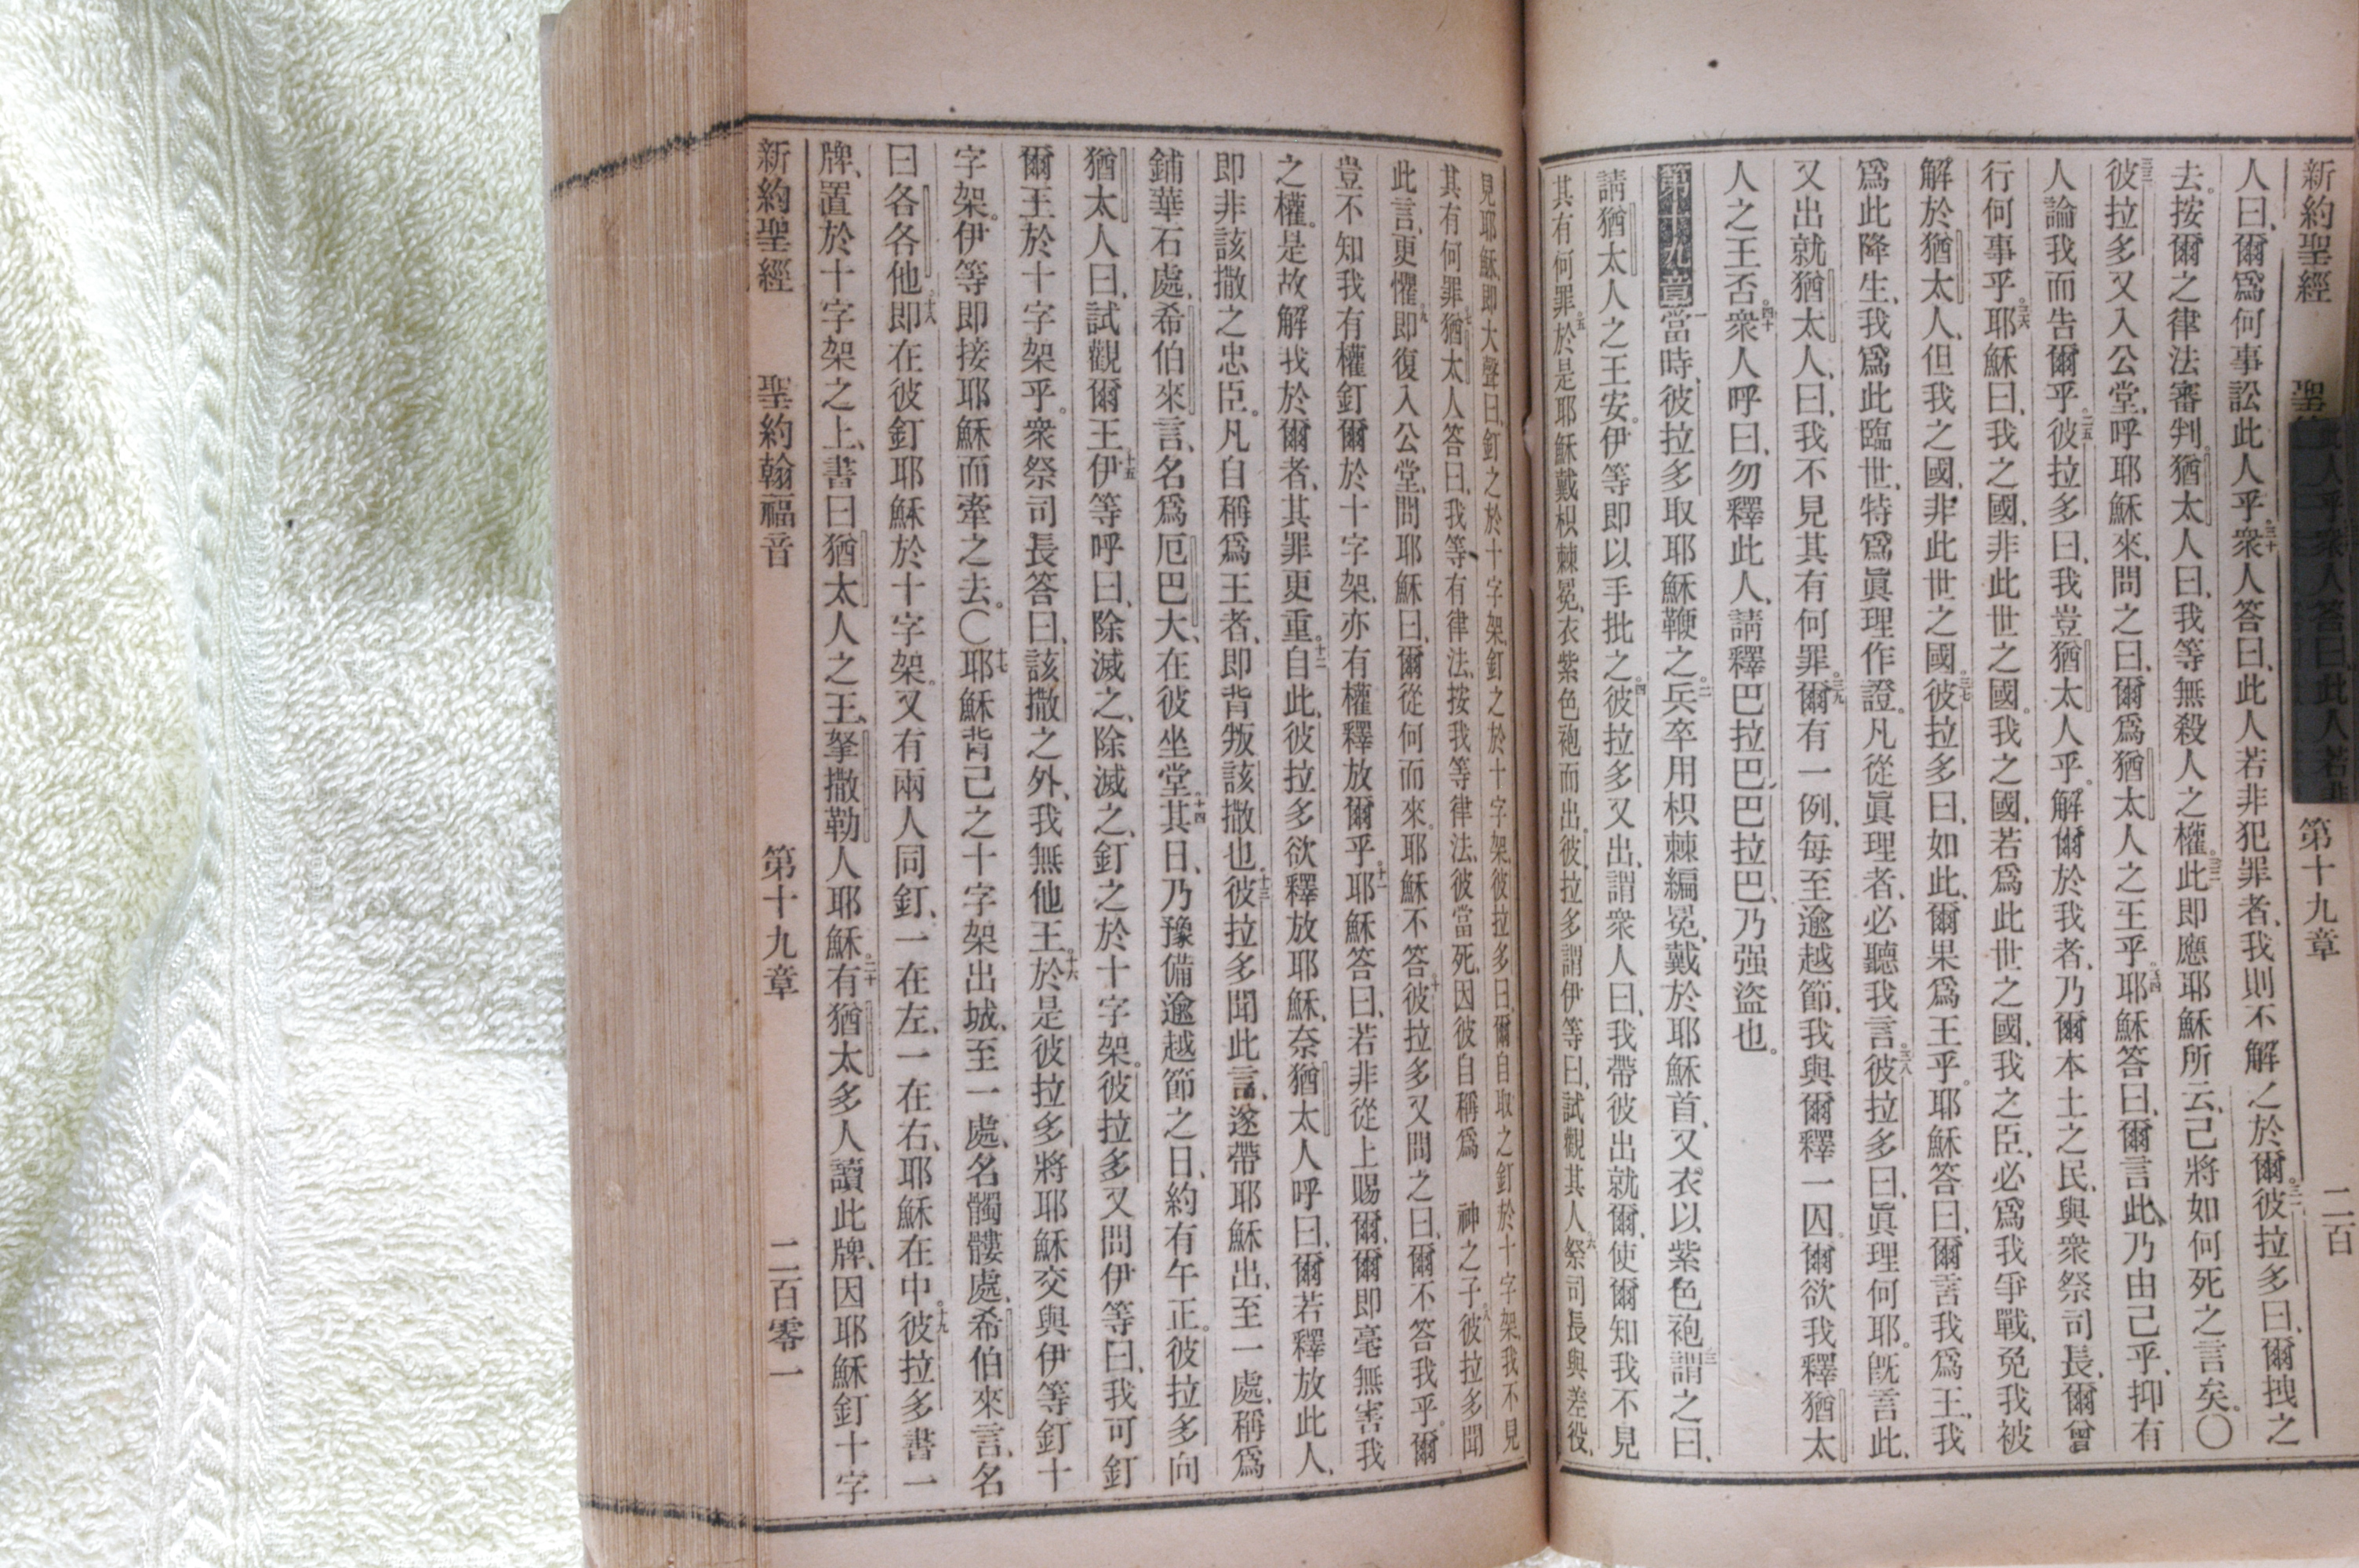 新約聖經 聖 第十九章 二百
人曰、爾爲何事訟此人乎。三十衆人答曰、此人若非犯罪者、我則不解之於爾。三一彼拉多曰、爾拽之
去。按爾之律法審判。猶太人曰、我等無殺人之權。三二此即應耶穌所云、己將如何死之言矣。〇
三三彼拉多又入公堂、呼耶穌來、問之曰、爾爲猶太人之王乎。三四耶穌答曰、爾言此、乃由己乎、抑有
人論我而告爾乎。三五彼拉多曰、我豈猶太人乎。解爾於我者、乃爾本土之民、與衆祭司長、爾曾
行何事乎。三六耶穌曰、我之國、非此世之國。我之國、若爲此世之國、我之臣、必爲我爭戰、免我被
解於猶太人、但我之國、非此世之國。三七彼拉多曰、如此、爾果爲王乎。耶穌答曰、爾言我爲王、我
爲此降生、我爲此臨世、特爲眞理作證。凡從眞理者、必聽我言。三八彼拉多曰、眞理何耶。既言此、
又出就猶太人、曰、我不見其有何罪。三九爾有一例、每至逾越節、我與爾釋一囚。爾欲我釋猶太
人之王否。四十衆人呼曰、勿釋此人、請釋巴拉巴、巴拉巴、乃强盜也。
第十九章 一當時、彼拉多取耶穌鞭之。二兵卒用枳棘編冕、戴於耶穌首、又衣以紫色袍、三謂之曰、
請猶太人之王安。伊等即以手批之。四彼拉多又出、謂衆人曰、我帶彼出就爾、使爾知我不見
其有何罪。五於是耶穌戴枳棘冕、衣紫色袍而出。彼拉多謂伊等曰、試觀其人。六祭司長與差役、
見耶穌、即大聲曰、釘之於十字架、釘之於十字架。彼拉多曰、爾自取之釘於十字架、我不見
其有何罪。七猶太人答曰、我等有律法、按我等律法、彼當死、因彼自稱爲 神之子。八彼拉多聞
此言、更懼。九即復入公堂、問耶穌曰、爾從何而來。耶穌不答。十彼拉多又問之曰、爾不答我乎。爾
豈不知我有權釘爾於十字架、亦有權釋放爾乎。十一耶穌答曰、若非從上賜爾、爾即毫無害我
之權。是故解我於爾者、其罪更重。十二自此、彼拉多欲釋放耶穌、奈猶太人呼曰、爾若釋放此人、
即非該撒之忠臣。凡自稱爲王者、即背叛該撒也。十三彼拉多聞此言、遂帶耶穌出、至一處、稱爲
鋪華石處、希伯來言、名爲厄巴大、在彼坐堂。十四其日、乃豫備逾越節之日、約有午正。彼拉多向
猶太人曰、試觀爾王。十五伊等呼曰、除滅之、除滅之、釘之於十字架。彼拉多又問伊等曰、我可釘
爾王於十字架乎。衆祭司長答曰、該撒之外、我無他王。十六於是彼拉多將耶穌交與伊等釘十
字架。伊等即接耶穌而牽之去。〇十七耶穌背己之十字架出城、至一處、名髑髏處、希伯來言、名
曰各各他。十八即在彼釘耶穌於十字架。又有兩人同釘、一在左、一在右、耶穌在中。十九彼拉多書一
牌、置於十字架之上、書曰、猶太人之王、拏撒勒人耶穌。二十有猶太多人讀此牌、因耶穌釘十字
新約聖經 聖約翰福音 第十九章 二百零一